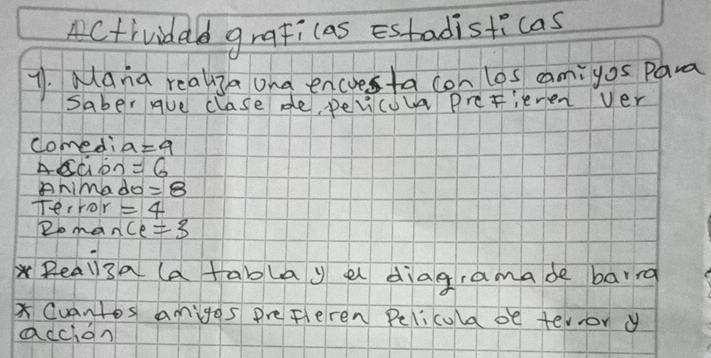 Actividad graficas Estadisticas
1). Maria realiza una encuesta con los amigos para
Saber que clase de pelicula Prefieren Ver
Comedia=9
Acción=6
Animado=8
Terror=4
Romance=3
* Realiza la tabla y el diagrama de barra
* Cuantos amigos prefieren Pelicula de terror y
acción